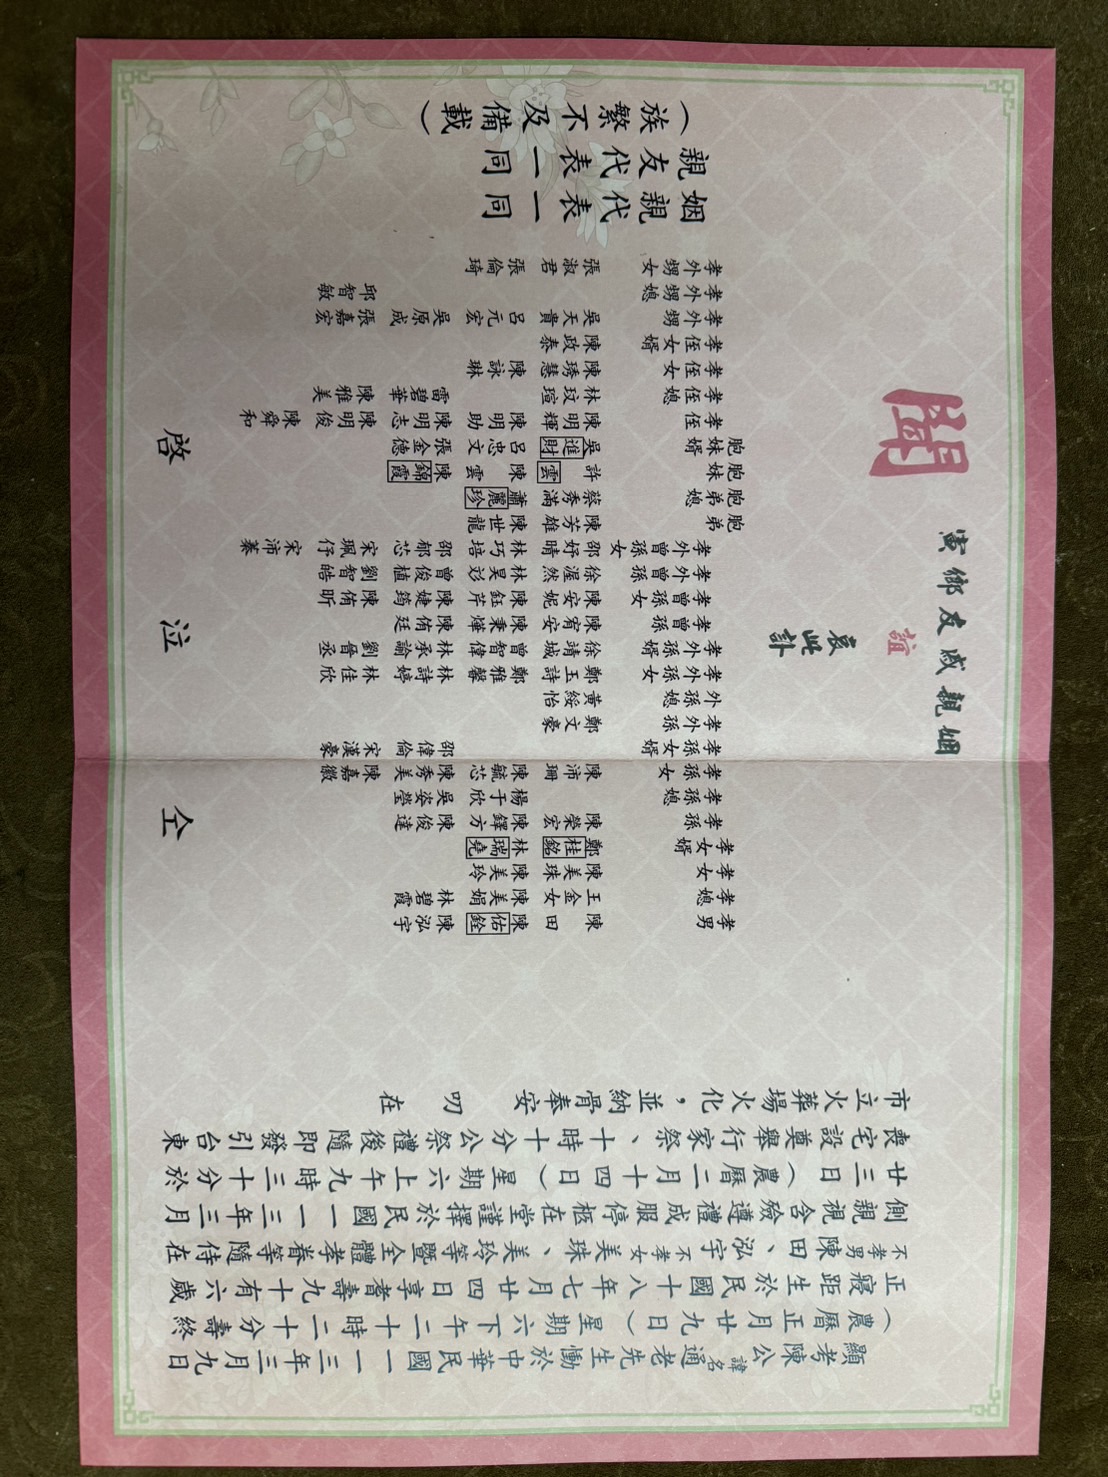 顯考陳公諱名通老先生慟於中華民國一一三年三月九日
（農曆正月廿九日）星期六下午十二時二十分壽終
正寢距生於民國十八年七月廿四日享耆壽九十有六歲
不孝男陳田、泓宇不孝女美珠、美玲等暨全體孝眷等隨侍在
側親視含殮遵禮成服停柩在堂謹擇於民國一一三年三月
廿三日（農曆二月十四日）星期六上午九時三十分於
喪宅設奠舉行家祭、十時十分公祭禮後隨即發引台東
市立火葬場火化，並納骨奉安 叨 在
姻親戚友鄉寅
誼
哀此訃
聞
孝男 陳田 陳佑銓 陳泓宇
孝媳 王金女 陳美娟 林碧霞
孝女 陳美珠 陳美玲
孝女婿 鄭桂銘 林瑞堯
孝孫 陳榮宏 陳鐸方 陳俊達
孝孫媳 楊于欣 吳姿瑩
孝孫女 陳沛珊 陳毓芯 陳秀美 陳嘉徽
孝孫女婿 邵偉倫 宋漢豪
孝外孫 鄭文豪
外孫媳 黃綏怡
孝外孫女 鄭玉詩 鄭雅馨 林詩婷 林佳欣
孝外孫婿 徐靖城 曾智偉 林承諭 劉晉丞
孝曾孫 陳宥安 陳秉燁 陳侑廷
孝曾孫女 陳安妮 陳鈺芹 陳婕筠 陳侑昕
孝外曾孫 徐渥然 林昊彣 曾俊植 劉智皓
孝外曾孫女 邵妤晴 林巧培 邵郁芯 宋珮伃 宋沛蓁
胞弟 陳芳雄 陳世龍
胞弟媳 蔡秀滿 蕭麗珍
胞妹 許雲 陳雲 陳錦霞
胞妹婿 吳進財 呂忠文 張金德
孝侄 陳明輝 陳明助 陳明志 陳明俊 陳舜和
孝侄媳 林玟瑄 雷碧華 陳雅美
孝侄女 陳琇慧 陳詠琳
孝侄女婿 陳政泰
孝外甥 吳天貴 呂元宏 吳原成 張嘉宏
孝外甥媳 邱智敏
孝外甥女 張淑君 張倫琦
姻親代表一同
親友代表一同
（族繁不及備載）
仝 泣 啓